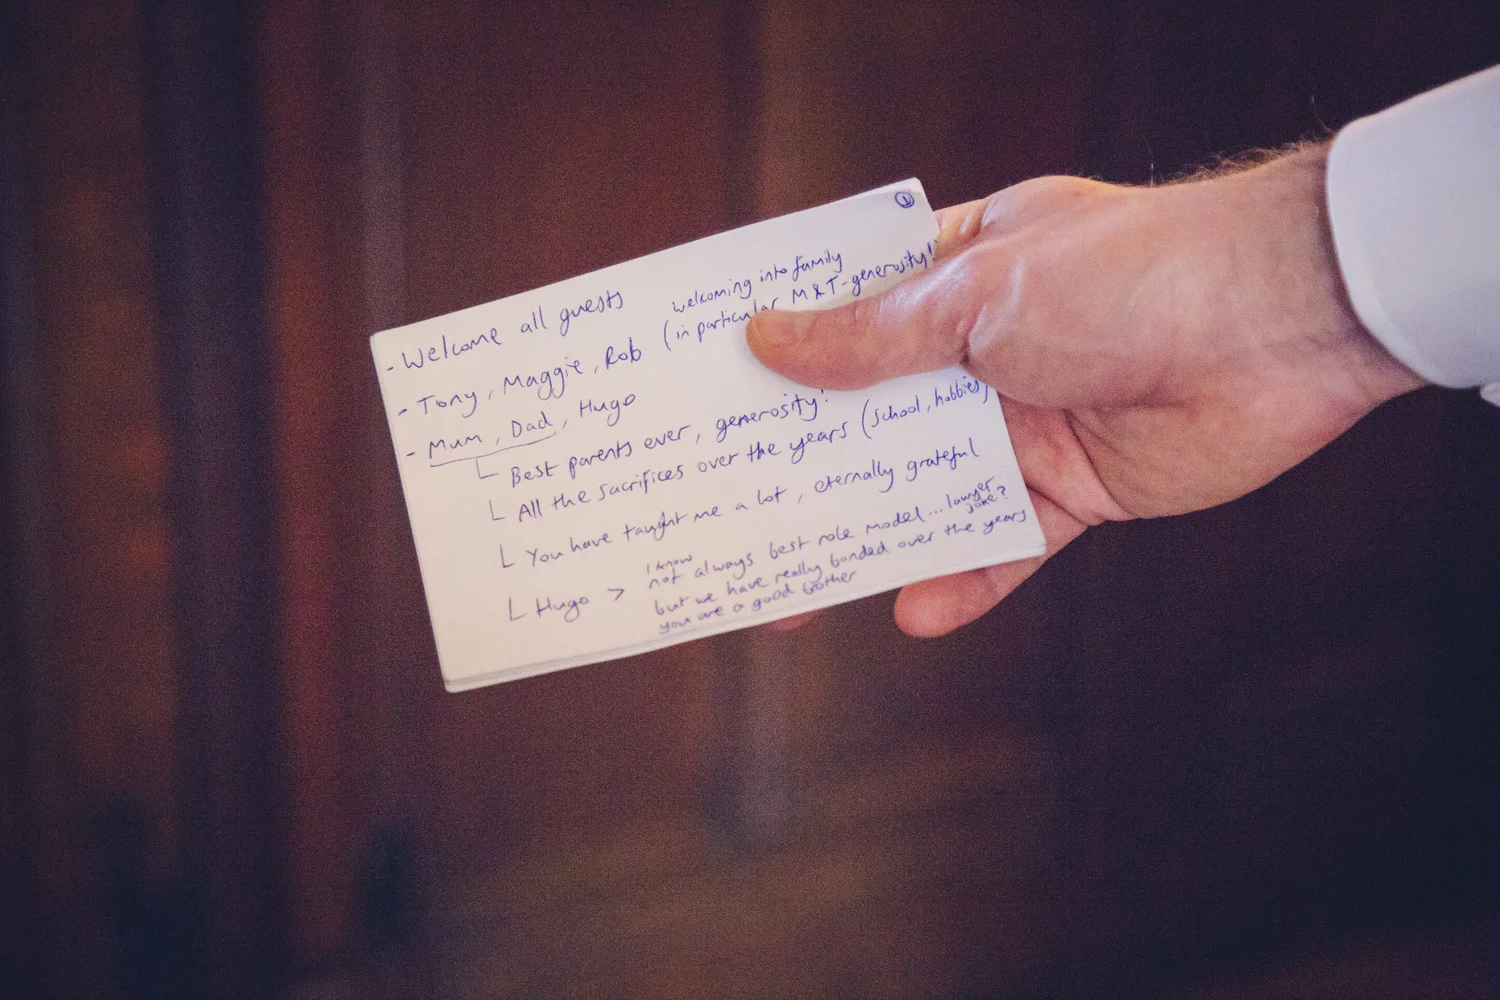 1
- Welcome all guests
- Tony, Maggie, Rob (welcoming into family
in particular M&T - generosity!
- Mum, Dad, Hugo
└ Best parents ever, generosity!
└ All the sacrifices over the years (school, hobbies)
└ You have taught me a lot, eternally grateful
└ Hugo > I know not always best role model... lawyer joke?
but we have really bonded over the years
you are a good brother